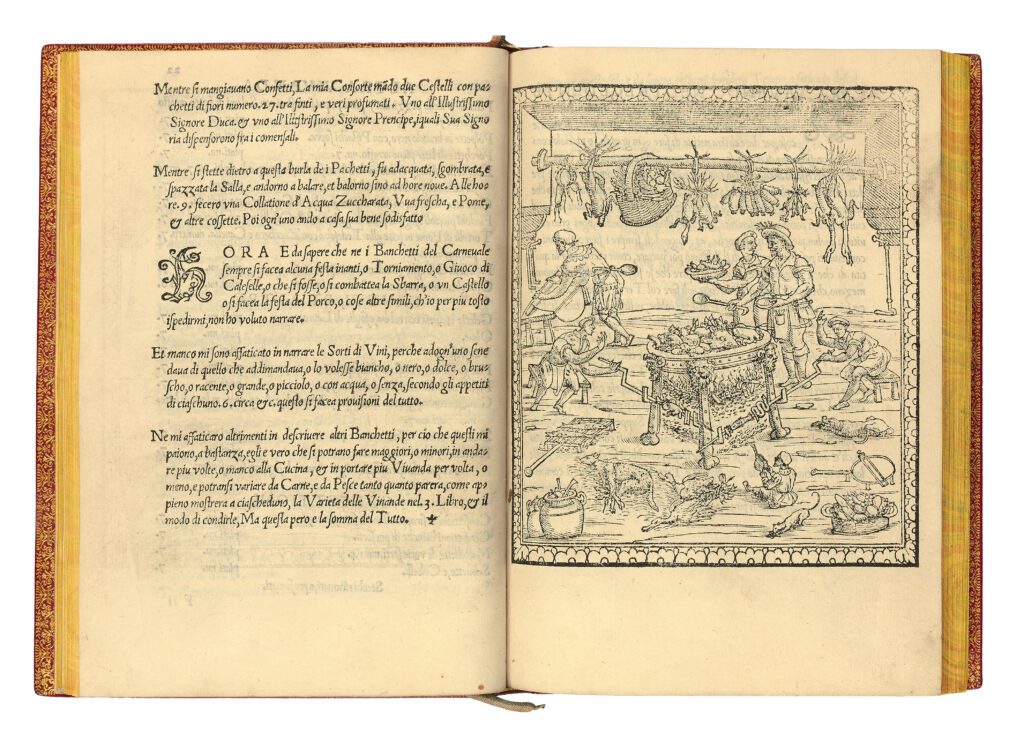 Mentre si mangiauano Confetti, La mia Consorte mādo due Cestelli con pa-
chetti di fiori numero. 27. tra finti, e veri profumati. Vno all'Illustrissimo
Signore Duca. & vno all'Illustrissimo Signore Prencipe, iquali Sua Signo
ria dispensorono fra i comensali.
Mentre si stette dietro a questa burla de i Pachetti, fu adacquata, sgombrata, e
spazzata la Salla, e andorno a balare, et balorno sino ad hore noue. A lle ho-
re. 9. fecero vna Collatione d'Acqua Zuccharata, Vua frescha, e Pome,
& altre cossette. Poi ogn'uno ando a casa sua bene sodisfatto
HORA E da sapere che ne i Banchetti del Carneuale
sempre si facea alcuna festa inanti, o Torniamento, o Giuoco di
Caleselle, o che si fosse, o si combattea la Sbarra, o vn Castello
o si facea la festa del Porco, o cose altre simili, ch'io per piu tosto
ispedirmi, non ho voluto narrare.
Et manco mi sono affaticato in narrare le Sorti di Vini, perche adogn'uno sene
daua di quello che addimandaua, o lo volesse biancho, o nero, o dolce, o bru-
scho, o racente, o grande, o picciolo, o con acqua, o senza, secondo gli appetiti
di ciaschuno. 6. circa &c. questo si facea prouisioni del tutto.
Ne mi affaticaro altrimenti in descriuere altri Banchetti, per cio che questi mi
paiono, a bastanza, egli e vero che si potrano fare maggiori, o minori, in anda-
re piu volte, o manco alla Cucina, & in portare piu Viuanda per volta, o
meno, e potransi variare da Carne, e da Pesce tanto quanto parera, come ap-
pieno mostrera a ciascheduno, la Varieta delle Viuande nel. 3. Libro, & il
modo di condirle, Ma questa pero e la somma del Tutto.